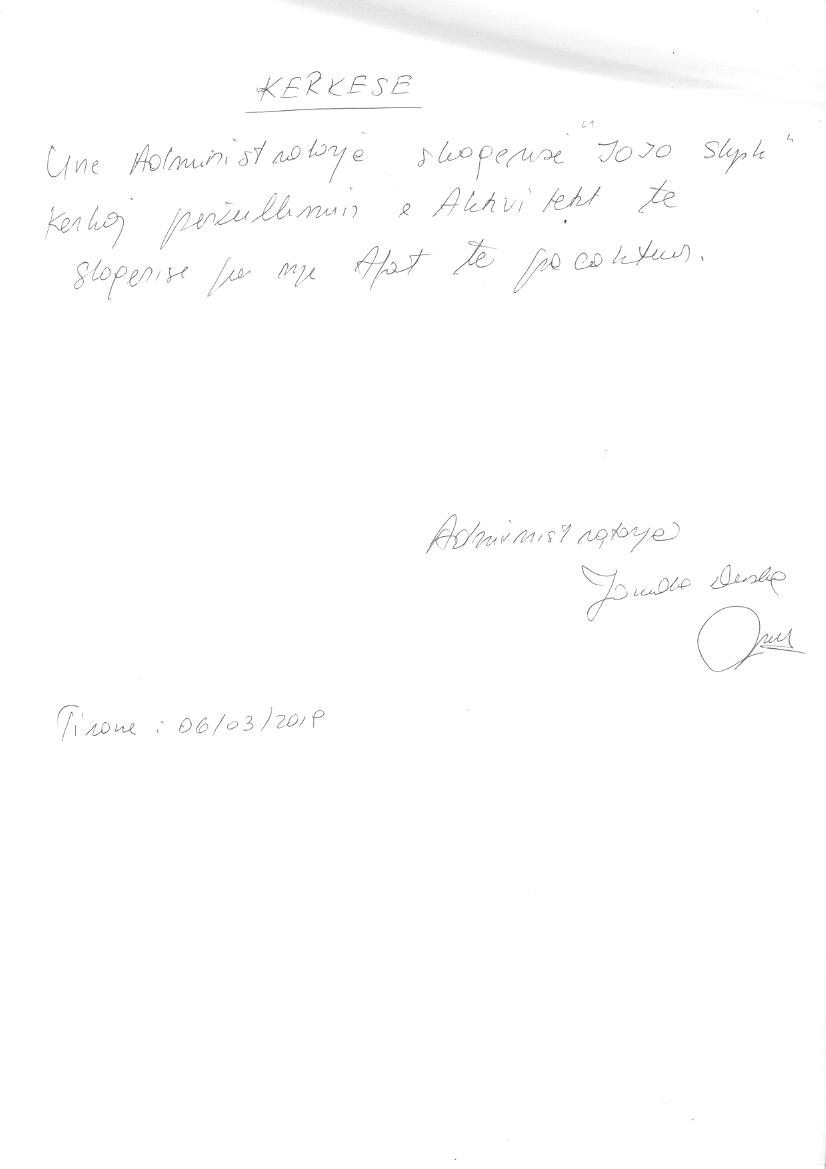 KERKESE
Une Administratorje shoperise "JOJO Style"
Kerkoj perzullimin e Aktivitetit te
shoperise per nje Afat te pacaktuar.
Administratorje
Tirane : 06/03/2018